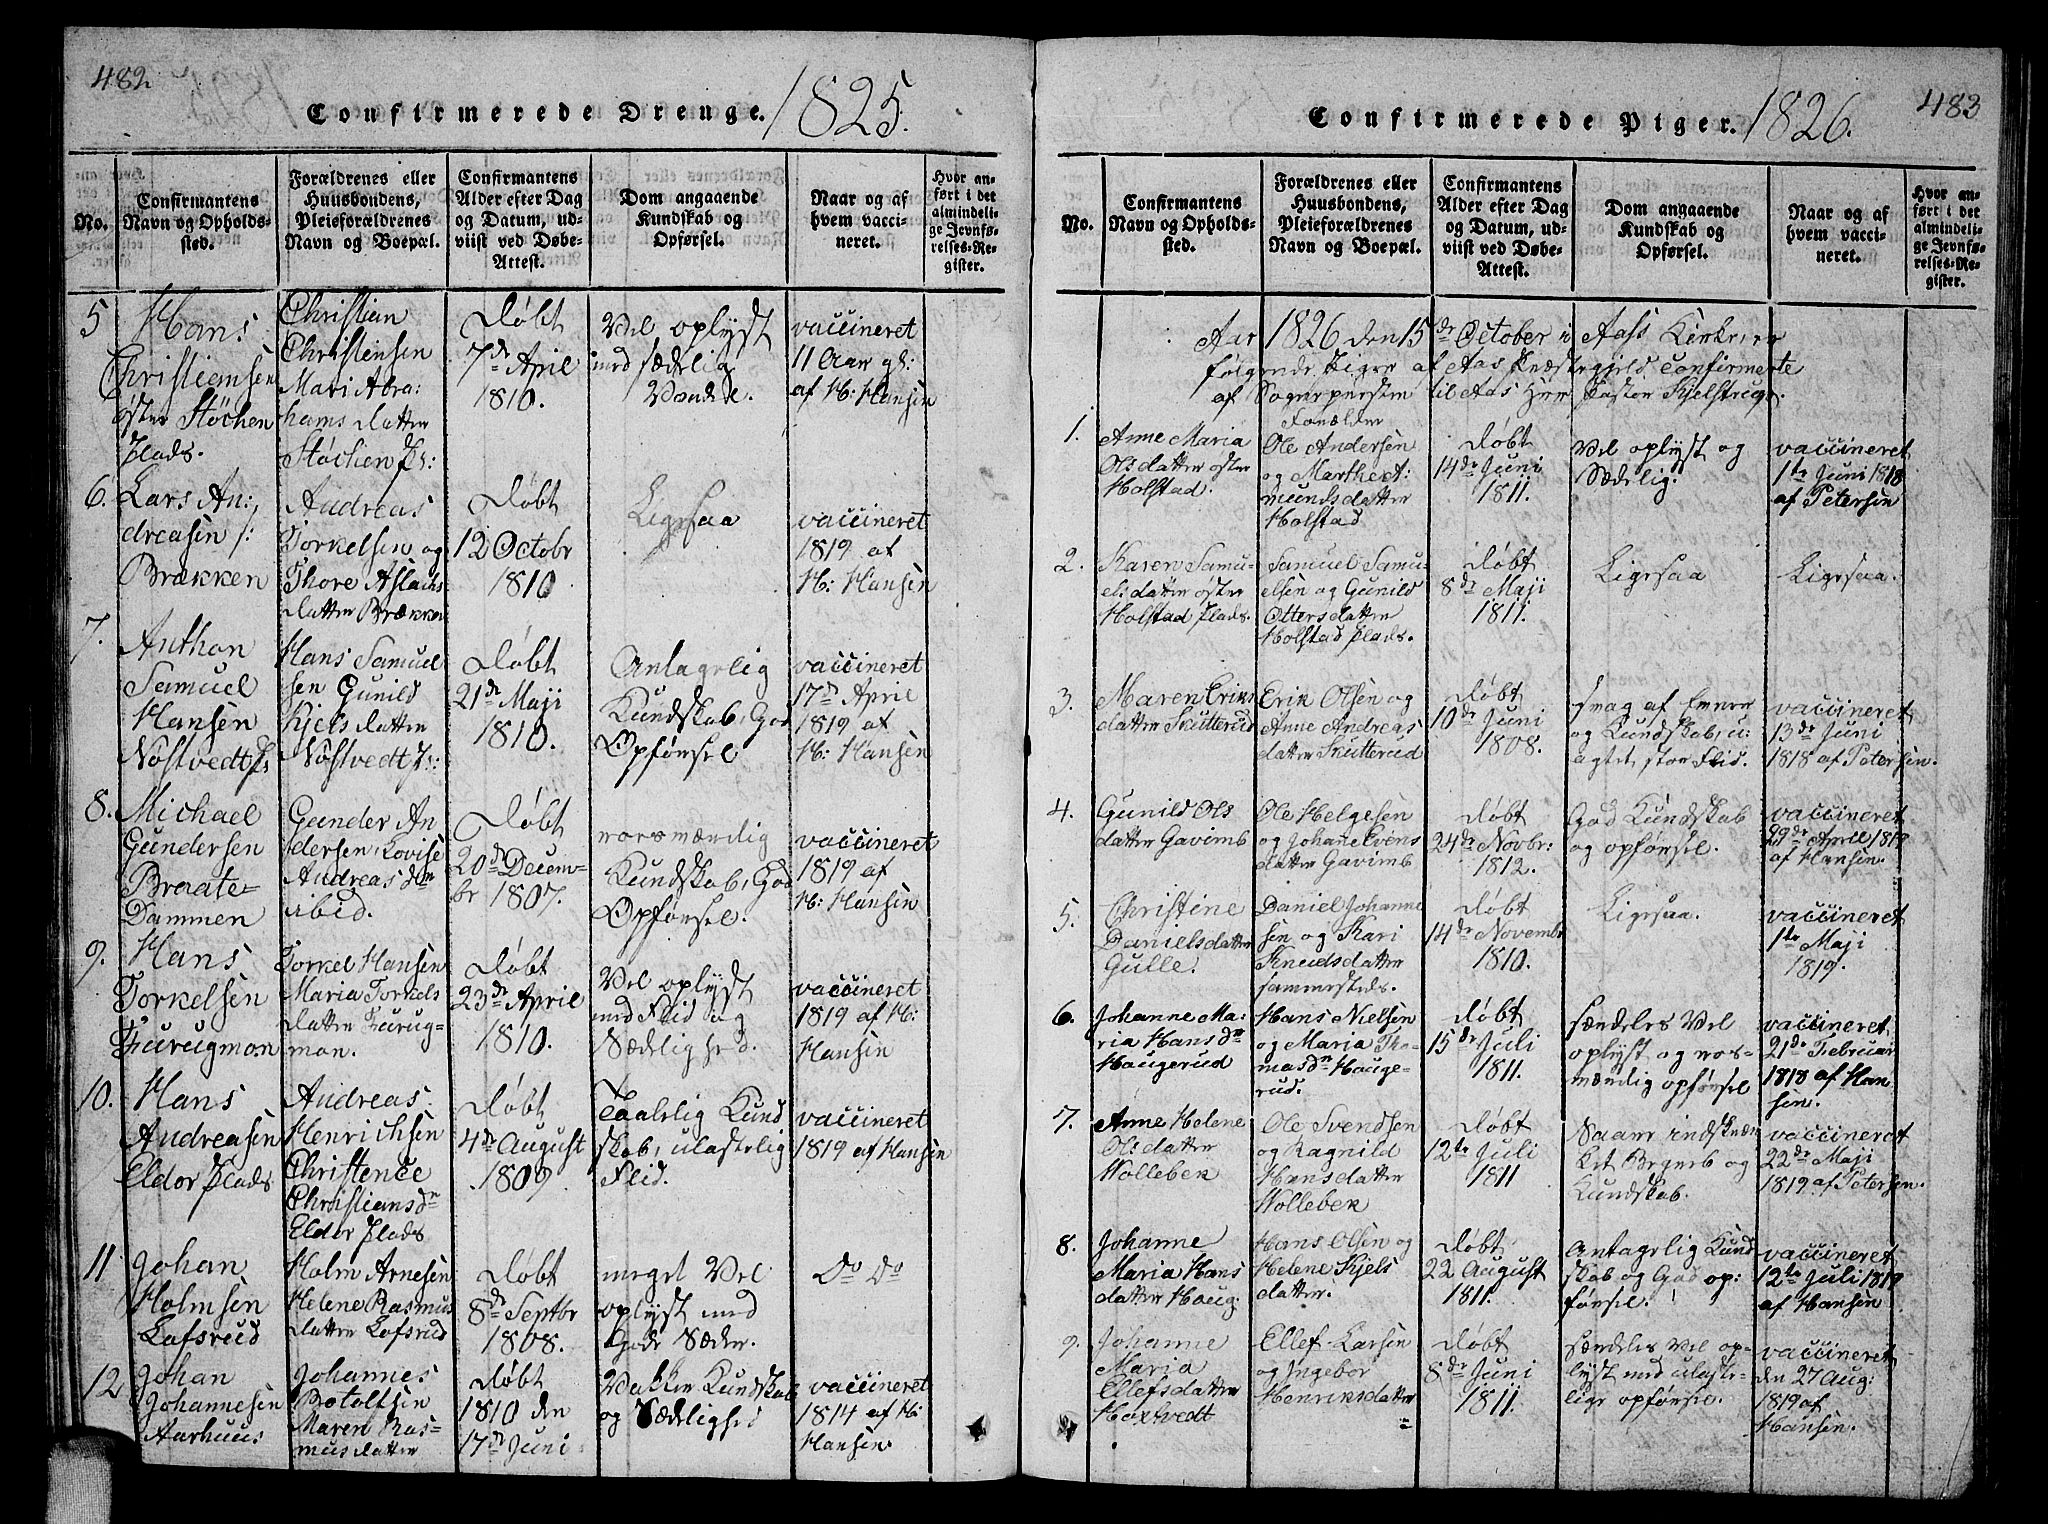 482
Confirmerede Drenge. 1825.
No.
Confirmantens
Navn og Opholds-
sted.
Forældrenes eller
Huusbondens,
Pleieforældrenes
Navn og Boepæl.
Confirmantens
Alder efter Dag
og Datum, ud-
viist ved Døbe-
Attest.
Dom angaaende
Kundskab og
Opførsel.
Naar og af
hvem vacci-
neret.
Hvor an-
ført i det
almindeli-
ge Jevnfø-
relses-Re-
gister.
5
Hans
Christiansen
øster Støchen
Plads.
Christian
Christensen
Mari Abra:
hams datter
Støchen Pl:
Døbt
7de April
1810.
Vel oplyst
med sædelig
Vandel.
vaccineret
11 Aar gl:
af H: Hansen
6.
Lars An:
dreasen /:
Brækken
Andreas
Torkelsen og
Thore Aslachs
datter Brækken
Døbt
12 Octobr
1810
Ligesaa
vaccineret
1819 af
H: Hansen
7.
Anthon
Samuel
Hansen
Nøstvedt
Hans Samuel
sen Gunild
Kjels datter
Nøstvedt
Døbt
21de Maji
1810.
Antagelig
Kundskab, God
Opførsel
vaccineret
17de April
1819 af
H: Hansen
8.
Michael
Gundersen
Braate=
Dammen
Gunder An
dersen, Lovise
Andreas dtr
ibid.
Døbt
20de Decem-
br 1807.
roesværdig
Kundskab, God
Opførsel.
vaccineret
1819 af
H: Hansen
9.
Hans
Torkelsen
Furugmon
Torkel Hansen
Maria Torkels
datter Furug-
mon.
Døbt
23de April
1810.
Vel oplyst
med Flid og
Sædelighed.
vaccineret
1819 af H:
Hansen
10.
Hans
Andreasen
Eldor Plads
Andreas
Henrichsen
Christence
Christiansdr
Eldor Plads
Døbt
4de August
1809
Taalelig Kund
skab, ulastelig
Flid.
vaccineret
1819 af Hansen
11
Johan
Holmsen
Lofsrud
Holm Arnesen
Helene Rasmus
datter Lofsrud
Døbt
8de Septbr
1808.
meget Vel
oplyst med
Gode Sæder.
Do Do
12
Johan
Johannesen
Aarhuus
Johannes
Botoltsen
Maren Ras-
musdatter
Døbt
1810 den
17de Juni
Vakker Kundskab
og Sædelighed
vaccineret
1814 af H:
Hansen.
483
Confirmerede Piger. 1826.
No.
Confirmantens
Navn og Opholds-
sted.
Forældrenes eller
Huusbondens,
Pleieforældrenes
Navn og Boepæl.
Confirmantens
Alder efter Dag
og Datum, ud-
viist ved Døbe-
Attest.
Dom angaaende
Kundskab og
Opførsel.
Naar og af
hvem vacci-
neret.
Hvor an-
ført i det
almindeli-
ge Jevnfø-
relses-Re-
gister.
Aar 1826 den 15de October i Aass Kirke, ere
følgende Piger af Aas Præstegjeld confirmerte
af Sognepresten til Aas Herr Pastor Kjelstrup.
Forælder
1.
Anne Maria
Olsdatter øster
Holstad.
Ole Andersen
og Marthe
munds datter
Holstad
Døbt
14de Juni
1811.
Vel oplyst og
Sædelig.
vaccineret
1te Juni 1818
af Petersen
2.
Karen Samu-
elsdatter øster
Holstad Plads.
Samuel Samu-
elsen og Gunild
Ottersdatter
Holstad Plads.
Døbt
8de Maji
1811.
Ligesaa
Ligesaa.
3.
Maren Eriks
datter Skutterud
Erik Olsen og
Anne Andreas
datter Skutterud
Døbt
10de Juni
1808.
svag af Evner
og Kundskab, u:
agtet stor Flid.
vaccineret
13de Juni
1818 af Petersen.
4.
Gunild Ols
datter Gavimb
Ole Helgesen
og Johane Evens
datter Gavimb
Døbt
24de Novbr:
1812.
God Kundskab
og opførsel.
vaccineret
29de April 1819
af Hansen.
5.
Christine
Danielsdatter
Gulle.
Daniel Johanne
sen og Kari
Knudsdatter
sammesteds.
Døbt
14de Novembr
1810.
Ligesaa.
vaccineret
1te Maji
1819.
6.
Johanne Ma:
ria Hansdr
Haugerud
Hans Nielsen
og Maria Tho-
masdr Hauge-
rud.
Døbt
15de Juli
1811.
særdeles Vel
oplyst og roes-
værdig opførsel
vaccineret
21de Februar
1818 af Han
sen.
7.
Anne Helene
Olsdatter
Holleben
Ole Svendsen
og Ragnild
Hansdatter
Holleben
Døbt
12te Juli
1811
Saare indskræn
ket Begreb og
Kundskab.
vaccineret
22de Maji
1819 af Petersen.
8.
Johanne
Maria Hans
datter Haug:
Hans Olsen og
Helene Kjels
datter.
Døbt
22 August
1811.
Antagelig Kund
skab og God op:
førsel.
vaccineret
12te Juli 1819
af Hansen
9.
Johanne
Maria
Ellefsdatter
Hoxtvedt
Ellef Larsen
og Ingebor
Henriksdatter
Døbt
8de Juni
1811.
særdeles Vel op-
lyst med ulaste-
lige opførsel.
vaccineret
den 27 Aug:
1819 af
Hansen.